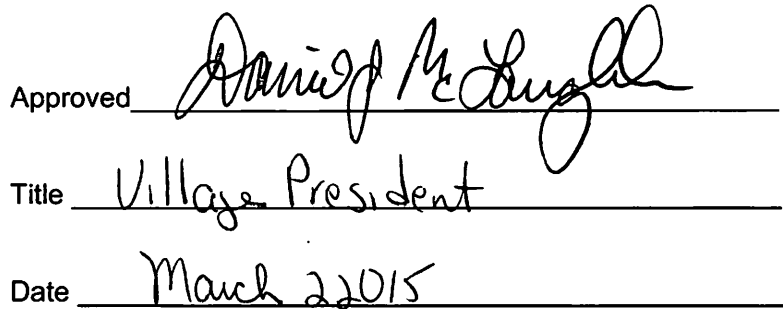 Approved Daniel J McLaughlin
Title Village President
Date March 22015